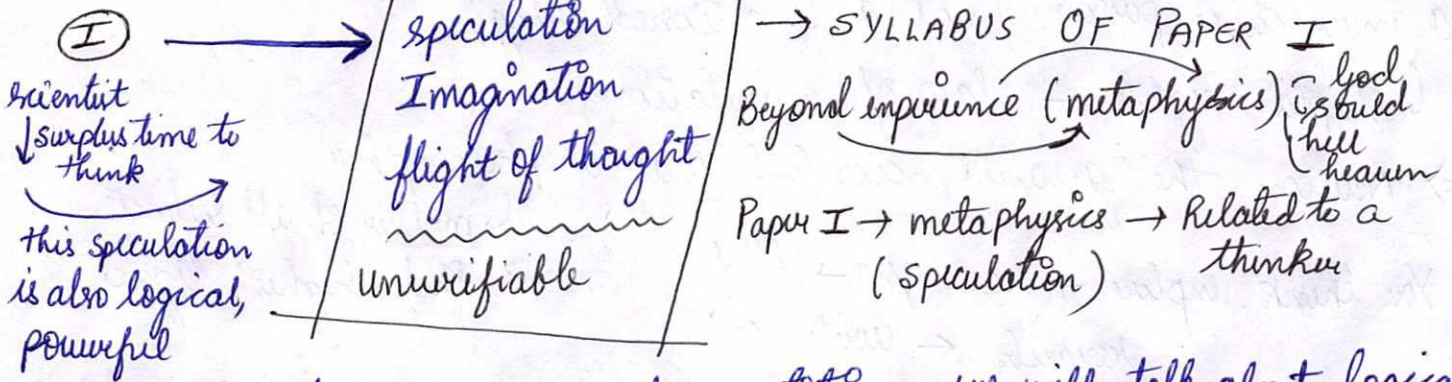 I →
scientist
↓ surplus time to
think
this speculation
is also logical,
powerful
speculation
Imagination
flight of thought
unverifiable
→ SYLLABUS OF PAPER I
Beyond experience (metaphysics) God,
sould
hell
heaven
Paper I → metaphysics → Related to a
(speculation) thinker
will talk about logic